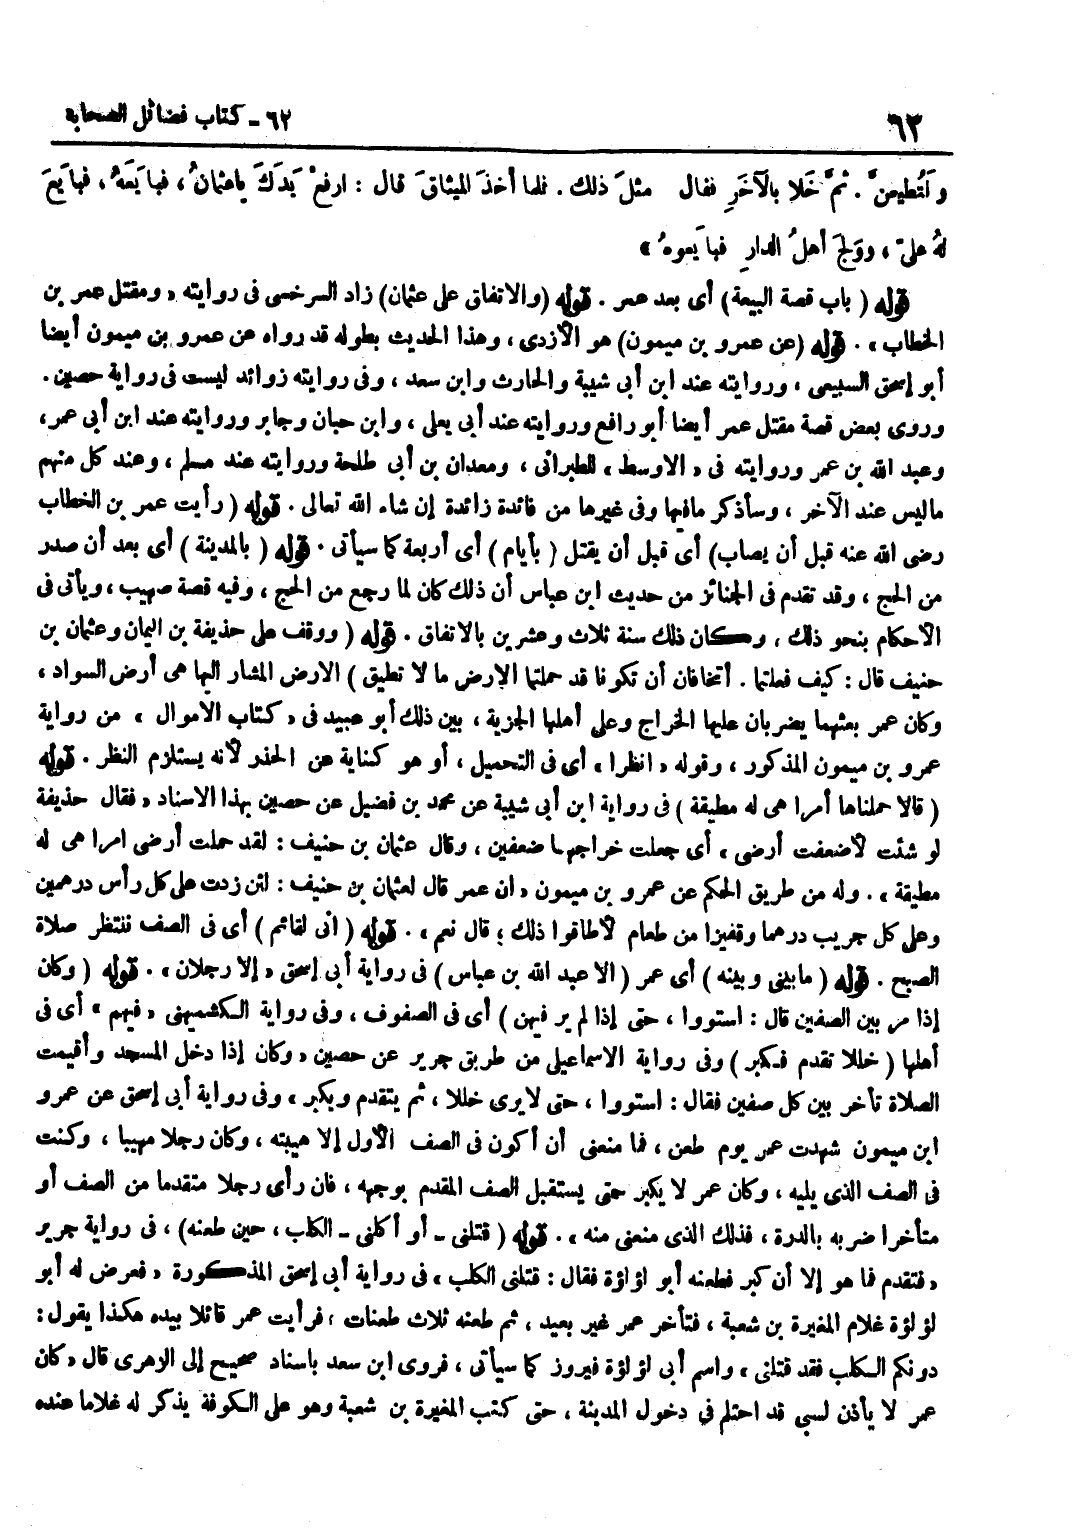 ٦٣
٦٢ - كتاب فضائل الصحابة
ولتُطيعنَّ. ثمَّ خَلا بالآخَرِ فقال مثلَ ذلك. فلما أخذَ الميثاقَ قال: ارفعْ يَدَكَ ياعثمانُ، فبايَعَهُ، فبايَعَ
لهُ علىّ، ووَلجَ أهلُ الدارِ فبايَعوهُ»
قوله (باب قصة البيعة) أى بعد عمر. قوله (والاتفاق على عثمان) زاد السرخسى فى روايته «ومقتل عمر بن
الخطاب». قوله (عن عمرو بن ميمون) هو الأزدى، وهذا الحديث بطوله قد رواه عن عمرو بن ميمون أيضا
أبو إسحق السبيعى، وروايته عند ابن أبى شيبة والحارث وابن سعد، وفى روايته زوائد ليست فى رواية حصين.
وروى بعض قصة مقتل عمر أيضا أبو رافع وروايته عند أبى يعلى، وابن حبان وجابر وروايته عند ابن أبى عمر،
وعبد الله بن عمر وروايته فى «الاوسط» للطبرانى، ومعدان بن أبى طلحة وروايته عند مسلم، وعند كل منهم
ماليس عند الآخر، وسأذكر مافيها وفى غيرها من فائدة زائدة إن شاء الله تعالى. قوله (رأيت عمر بن الخطاب
رضى الله عنه قبل أن يصاب) أى قبل أن يقتل (بأيام) أى أربعة كما سيأتى. قوله (بالمدينة) أى بعد أن صدر
من الحج، وقد تقدم فى الجنائز من حديث ابن عباس أن ذلك كان لما رجع من الحج، وفيه قصة صهيب، ويأتى فى
الأحكام بنحو ذلك، وكان ذلك سنة ثلاث وعشرين بالاتفاق. قوله (ووقف على حذيفة بن اليمان وعثمان بن
حنيف قال: كيف فعلتما. أتخافان أن تكونا قد حملتما الارض ما لا تطيق) الارض المشار اليها هى أرض السواد،
وكان عمر بعثهما يضربان عليها الخراج وعلى أهلها الجزية، بين ذلك أبو عبيد فى «كتاب الاموال» من رواية
عمرو بن ميمون المذكور، وقوله «انظرا» أى فى التحميل، أو هو كناية عن الحذر لأنه يستلزم النظر. قوله
(قالا حملناها أمرا هى له مطيقة) فى رواية ابن أبى شيبة عن محمد بن فضيل عن حصين بهذا الاسناد «فقال حذيفة
لو شئت لأضعفت أرضى، أى جعلت خراجها ضعفين، وقال عثمان بن حنيف: لقد حملت أرضى امرا هى له
مطيقة». وله من طريق الحكم عن عمرو بن ميمون «ان عمر قال لعثمان بن حنيف: لئن زدت على كل رأس درهمين
وعلى كل جريب درهما وقفيزا من طعام لأطاقوا ذلك؛ قال نعم». قوله (انى لقائم) أى فى الصف ننتظر صلاة
الصبح. قوله (مابينى وبينه) أى عمر (الا عبد الله بن عباس) فى رواية أبى إسحق «إلا رجلان». قوله (وكان
إذا مر بين الصفين قال: استووا، حتى إذا لم ير فيهن) أى فى الصفوف، وفى رواية الكشميهنى «فيهم» أى فى
أهلها (خللا تقدم فكبر) وفى رواية الاسماعيلى من طريق جرير عن حصين «وكان إذا دخل المسجد وأقيمت
الصلاة تأخر بين كل صفين فقال: استووا، حتى لا يرى خللا، ثم يتقدم ويكبر» وفى رواية أبى إسحق عن عمرو
ابن ميمون شهدت عمر يوم طعن، فما منعنى أن أكون فى الصف الأول إلا هيبته، وكان رجلا مهيبا، وكنت
فى الصف الذى يليه، وكان عمر لا يكبر حتى يستقبل الصف المقدم بوجهه، فان رأى رجلا متقدما من الصف أو
متأخرا ضربه بالدرة، فذلك الذى منعنى منه». قوله (قتلنى - أو أكلنى - الكلب، حين طعنه)، فى رواية جرير
«فتقدم فما هو إلا أن كبر فطعنه أبو لؤلؤة فقال: قتلنى الكلب» فى رواية أبى إسحق المذكورة «فعرض له أبو
لؤلؤة غلام المغيرة بن شعبة، فتأخر عمر غير بعيد، ثم طعنه ثلاث طعنات، فرأيت عمر قائلا بيده هكذا يقول:
دونكم الكلب فقد قتلنى» واسم أبى لؤلؤة فيروز كما سيأتى، فروى ابن سعد باسناد صحيح إلى الزهرى قال «كان
عمر لا يأذن لسبي قد احتلم في دخول المدينة، حتى كتب المغيرة بن شعبة وهو على الكوفة يذكر له غلاما عنده